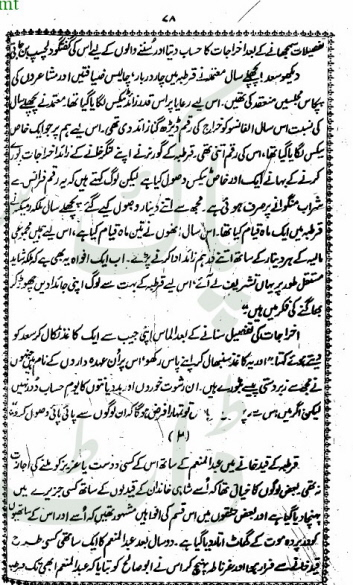 mt
۷۸
تفصیلات سمجھانے کے بعد اخراجات کا حساب دیتا اور سننے والوں کے لیے اس کی گفتگو دلچسپ بن جاتی
دیکھو سعد! پچھلے سال معتمد نے قرطبہ میں چار دربار، چالیس ضیافتیں اور مشاعروں کی
پچاس مجلسیں منعقد کی تھیں۔ اس لیے رعایا پر اس قدر زائد ٹیکس لگایا گیا تھا، معتمد نے پچھلے سال
کی نسبت اس سال الفانسو کو خراج کی رقم ڈیڑھ گنا زائد دی تھی۔ اس لیے ہم پر جو ایک خاص
ٹیکس لگایا گیا تھا، اس کی رقم اتنی تھی۔ قرطبہ کے گورنر نے اپنے لنگر خانے کے زائد اخراجات پورے
کرنے کے بہانے ایک اور خاص ٹیکس وصول کیا ہے لیکن لوگ کہتے ہیں کہ یہ رقم فرانس سے
شراب منگوانے پر صرف ہوئی ہے۔ مجھ سے اتنے دینار وصول کیے گئے۔ پچھلے سال ملکہ رمیکیہ
قرطبہ میں ایک ماہ قیام کیا تھا۔ اس سال انھوں نے تین ماہ قیام کیا ہے، اس لیے ہمیں مجموعی
مالیہ کے ہر دینار کے ساتھ اتنے درہم زائد ادا کرنے پڑے۔ اب ایک افواہ یہ بھی ہے کہ ملکہ شاید
مستقل طور پر یہاں تشریف لے آئے، اس لیے قرطبہ کے بہت سے لوگ اپنی جائدادیں چھوڑ کر
بھاگنے کی فکر میں ہیں"
اخراجات کی تفصیل سنانے کے بعد الماس اپنی جیب سے ایک کاغذ نکال کر سعد کو
دیتے ہوئے کہتا: "اور یہ کاغذ سنبھال کر اپنے پاس رکھو، اس پر ان عہدہ داروں کے نام ہیں جنھوں
نے مجھ سے زبردستی پیسے بٹورے ہیں۔ ان رشوت خوروں اور بددیانتوں کا یوم حساب دور نہیں
لیکن اگر میں اس سے پہلے تو تمہارا فرض ہوگا کہ ان لوگوں سے پائی پائی وصول کرو"
(۲)
قرطبہ کے قید خانے میں عبدالمنعم کے ساتھ اس کے کسی دوست یا عزیز کو ملنے کی اجازت
نہ تھی، بعض لوگوں کا خیال تھا کہ اُسے شاہی خاندان کے قیدیوں کے ساتھ کسی جزیرے میں
پہنچا دیا گیا ہے اور بعض حلقوں میں اس قسم کی افواہیں مشہور تھیں کہ اُسے اور اس کے ساتھیوں
کو در پردہ موت کے گھاٹ اتار دیا گیا ہے۔ دو سال بعد عبدالمنعم کا ایک ساتھی کسی طرح
قید خانے سے فرار ہوا اور غرناطہ پہنچ کر اس نے ابو صالح کو بتایا کہ عبدالمنعم ابھی تک